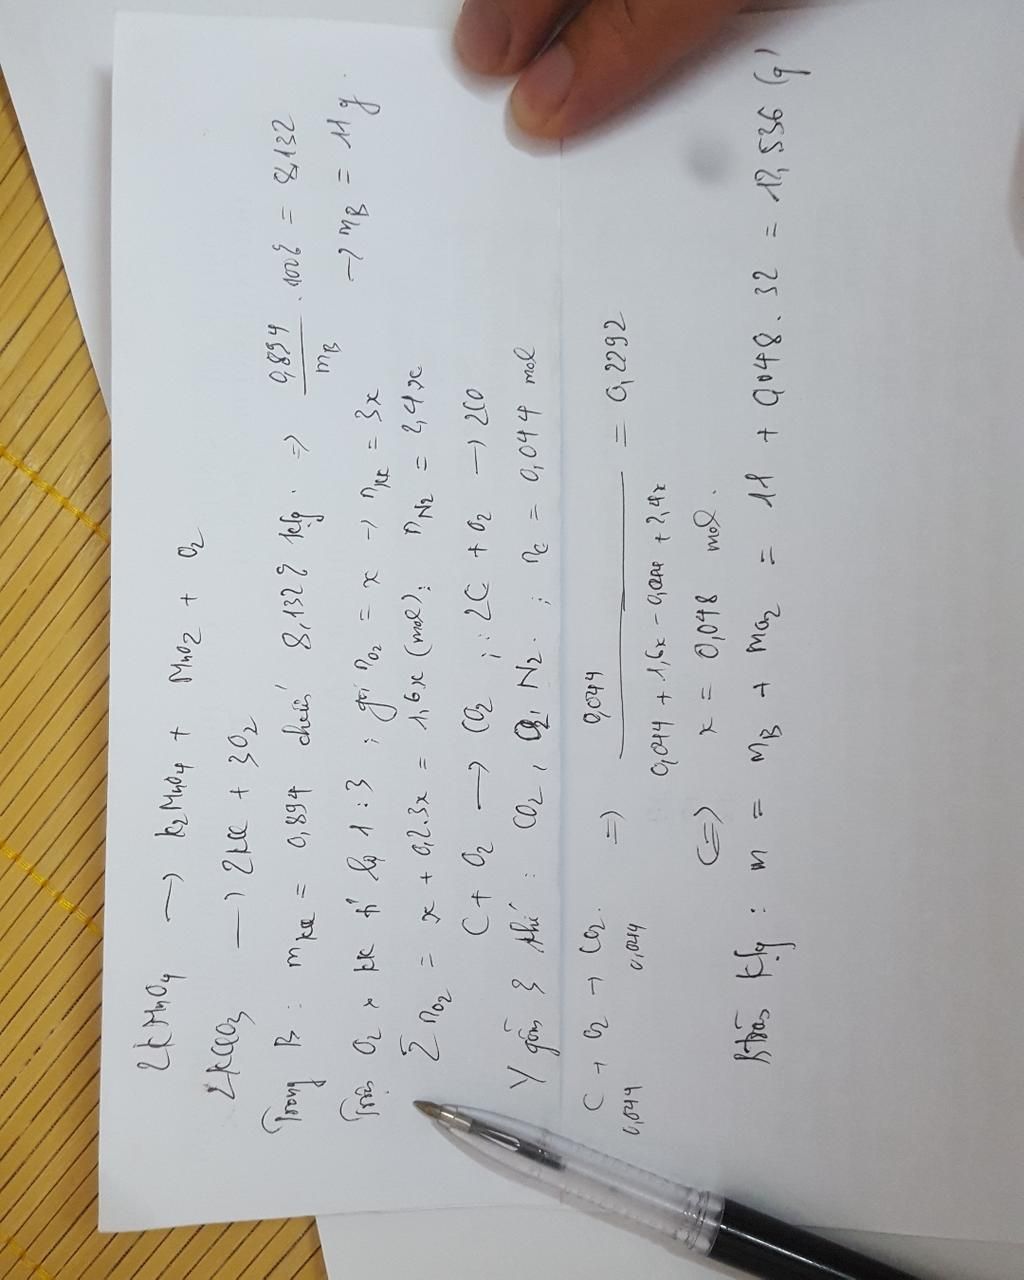 2KMnO4 → K2MnO4 + MnO2 + O2
2KClO3 → 2KCl + 3O2
Trong B : mKCl = 0,894 chiếm 8,132% klg. => 0,894/mB . 100% = 8,132
→ mB = 11 g.
Trộn O2 × KK tỉ lệ 1:3 ; gọi nO2 = x → nKK = 3x
∑ nO2 = x + 0,2.3x = 1,6x (mol); nN2 = 2,4x
C + O2 → CO2 ; 2C + O2 → 2CO
Y gồm 3 khí : CO2, O2, N2. ; nC = 0,044 mol
C + O2 → CO2. => 0,044/(0,044 + 1,6x - 0,044 + 2,4x) = 0,2292
0,044 0,044
(=) x = 0,048 mol.
Btoàn Klg : m = mB + mO2 = 11 + 0,048.32 = 12,536 (g)